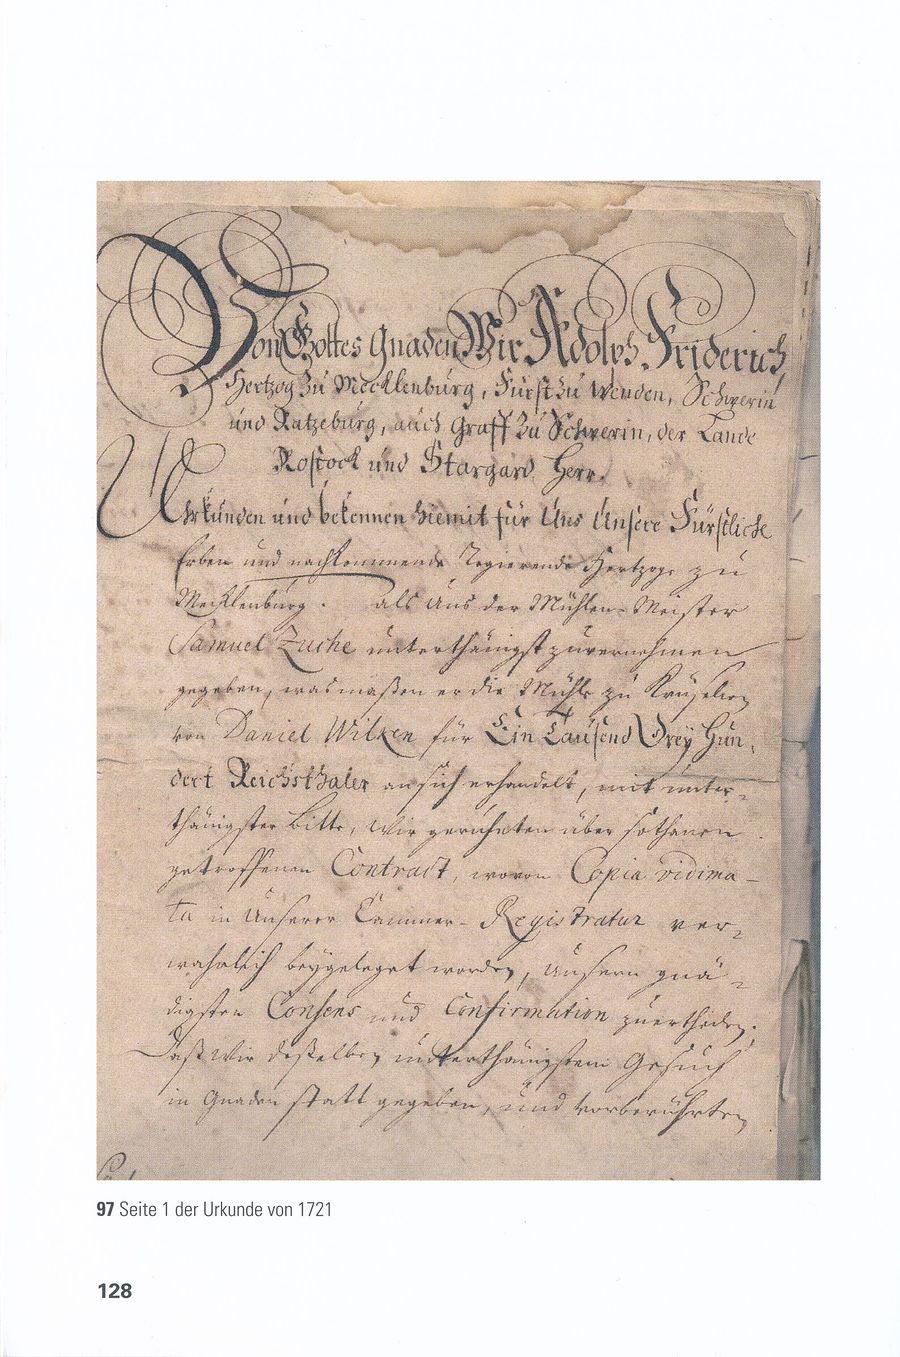 Von Gottes Gnaden Wir Adolph Friderich,
Hertzog zu Mecklenburg, Fürst zu Wenden, Schwerin
und Ratzeburg, auch Graff zu Schwerin, der Lande
Rostock und Stargard Herr.
Uhrkunden und bekennen hiemit für Uns Unsere Fürstliche
Erben und nachkommende Regierende Hertzoge zu
Mecklenburg. als Uns der Mühlen-Meister
Samuel Zuche unterthänigst zuvernehmen
gegeben, was maßen er die Mühle zu Krüselin
von Daniel Wilken für Ein Tausend Drey Hun-
dert Reichsthaler an sich erhandelt, mit unter-
thänigster Bitte, Wir geruheten über sothanen
getroffenen Contract, wovon Copia vidima-
ta in Unserer Cammer-Registratur ver-
wahrlich beygeleget worden, Unsern gnä-
digsten Consens und Confirmation zuertheilen;
Daß Wir deßelben unterthänigstem Gesuch
in Gnaden statt gegeben, und vorberührten
97 Seite 1 der Urkunde von 1721
128